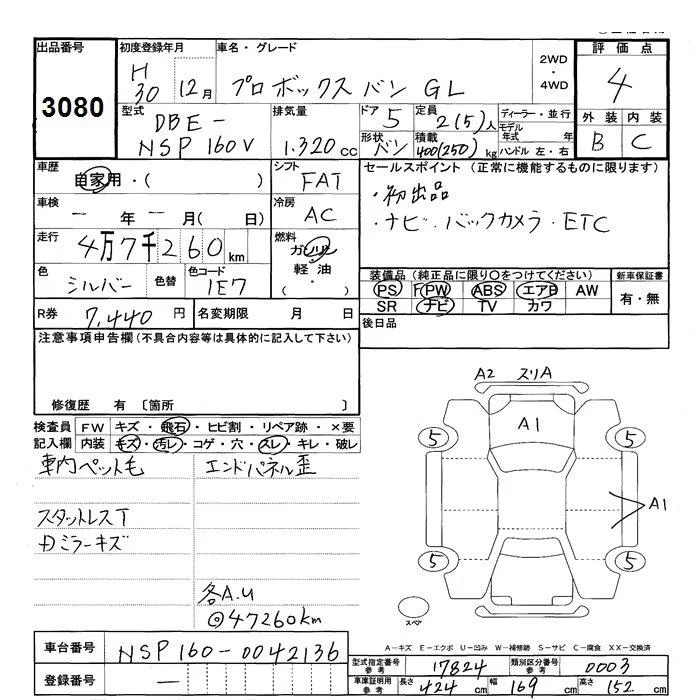 出品番号
3080
初度登録年月
H30 12月
車名・グレード
プロボックス バン GL
2WD
・
4WD
評価点
4
外装 内装
B C
型式
DBE-
NSP160V
排気量
1.320cc
ドア
5
形状
バン
定員
2(5)人
積載
400(250)kg
ディーラー・並行
モデル年式 年
ハンドル 左・右
車歴
自家用・( )
シフト
FAT
車検
ー年ー月(日)
冷房
AC
走行
4万7千260km
燃料
ガソリン
・
軽油
・
( )
色
シルバー
色替
色コード
1E7
R券
7,440円
名変期限 月 日
セールスポイント(正常に機能するものに限ります)
・初出品
・ナビ・バックカメラ・ETC
装備品(純正品に限り○をつけてください)
PS PW ABS エアB AW
SR ナビ TV カワ
新車保証書
有・無
後日品
注意事項申告欄(不具合内容等は具体的に記入して下さい)
修復歴 有〔箇所 〕
検査員 FW キズ・飛石・ヒビ割・リペア跡・×要
記入欄 内装 キズ・汚レ・コゲ・穴・スレ・キレ・破レ
車内ペット毛
エンドパネル歪
スタットレスT
ミラーキズ
各A.U
◎47260km
A2 スリA
A1
5 5
A1
5 5
スペア
A-キズ E-エクボ U-凹み W-補修跡 S-サビ C-腐食 XX-交換済
車台番号
NSP160-0042136
登録番号
ー
型式指定番号 参考
17824
類別区分番号 参考
0003
車庫証明用 参考
長さ 424cm 幅 169cm 高さ 152cm